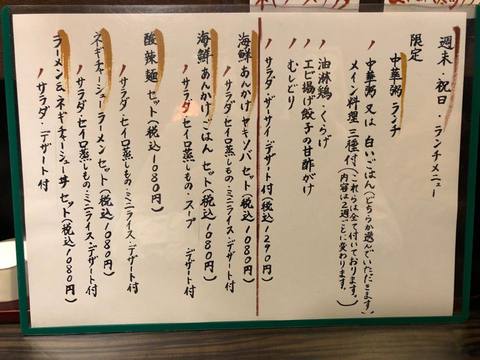 週末・祝日・ランチメニュー
限定
中華粥ランチ
中華粥又は白いごはん(どちらか選んでいただきます)
メイン料理三種付(これらは全て付いております。内容は2週ごとに変わります。)
油淋鶏・くらげ
エビ揚げ餃子の甘酢がけ
むしどり
サラダ・ザーサイ・デザート付(税込1290円)
海鮮あんかけヤキソバセット(税込1080円)
サラダ・セイロ蒸しもの・ミニライス・デザート付
海鮮あんかけごはんセット(税込1080円)
サラダ・セイロ蒸しもの・スープ デザート付
酸辣麺セット(税込1080円)
サラダ・セイロ蒸しもの・ミニライス・デザート付
ネギチャーシューラーメンセット(税込1080円)
サラダ・セイロ蒸しもの・ミニライス・デザート付
ラーメン&ネギチャーシュー丼セット(税込1080円)
サラダ・デザート付